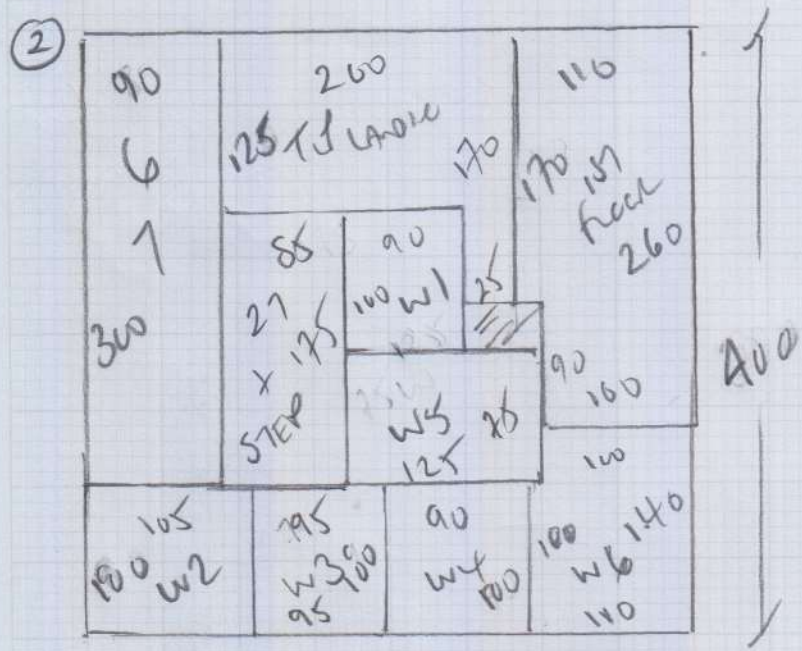 2
90
6
7
300
200
125 T/S LANDIC
170
110
170 1ST
FLOOR
260
85
27
X 175
STEP
90
100 W1
25
90
100
W5 75
125
400
105
100 W2
95
W3 100
95
90
W4 100
100
100 W6 140
110